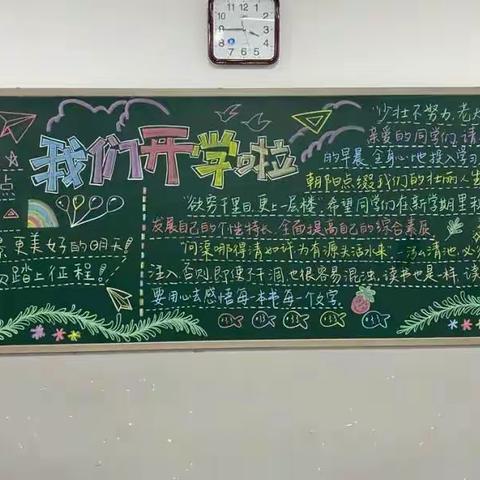 我们开学啦
点
更美好的明天!
踏上征程!
少壮不努力,老大
亲爱的同学们,请
的早晨,全身心地投入学习
朝阳点缀我们的壮丽人生
欲穷千里目,更上一层楼,希望同学们在新学期里
发展自己的个性特长,全面提高自己的综合素质
问渠哪得清如许,为有源头活水来, 清池,必须
注入,否则,即便不涸,也很容易混浊,读书也是一样,读
要用心去感悟每一本书,每一个文字。